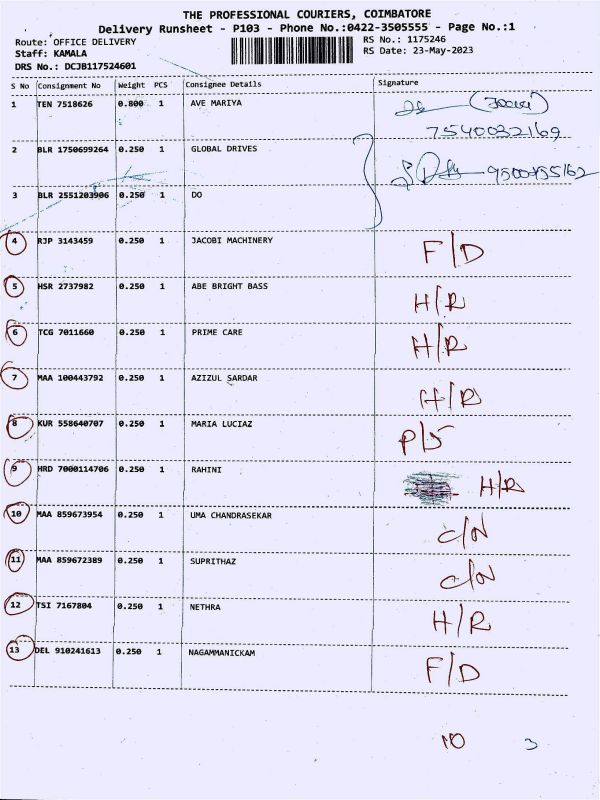 THE PROFESSIONAL COURIERS, COIMBATORE
Delivery Runsheet - P103 - Phone No.:0422-3505555 - Page No.:1
Route: OFFICE DELIVERY
RS No.: 1175246
Staff: KAMALA
RS Date: 23-May-2023
DRS No.: DCJB117524601
S No Consignment No Weight PCS Consignee Details Signature
1 TEN 7518626 0.800 1 AVE MARIYA
7540032169
2 BLR 1750699264 0.250 1 GLOBAL DRIVES
3 BLR 2551203906 0.250 1 DO
4 RJP 3143459 0.250 1 JACOBI MACHINERY F/D
5 HSR 2737982 0.250 1 ABE BRIGHT BASS H/R
6 TCG 7011660 0.250 1 PRIME CARE H/R
7 MAA 100443792 0.250 1 AZIZUL SARDAR H/R
8 KUR 558640707 0.250 1 MARIA LUCIAZ P/S
9 HRD 7000114706 0.250 1 RAHINI H/R
10 MAA 859673954 0.250 1 UMA CHANDRASEKAR C/N
11 MAA 859672389 0.250 1 SUPRITHAZ C/N
12 TSI 7167804 0.250 1 NETHRA H/R
13 DEL 910241613 0.250 1 NAGAMMANICKAM F/D
10 3